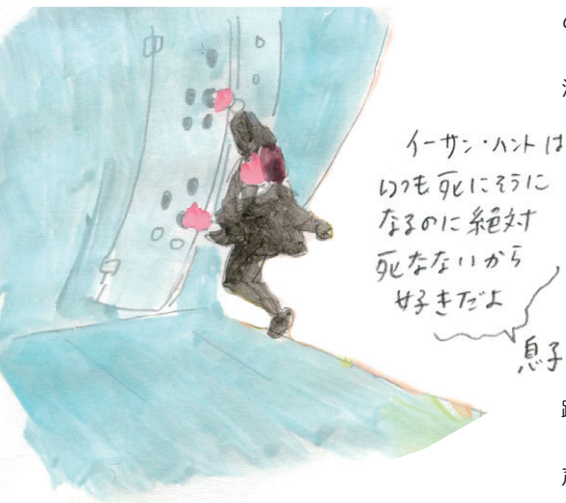 イーサン・ハントは
いつも死にそうに
なるのに絶対
死なないから
好きだよ
息子